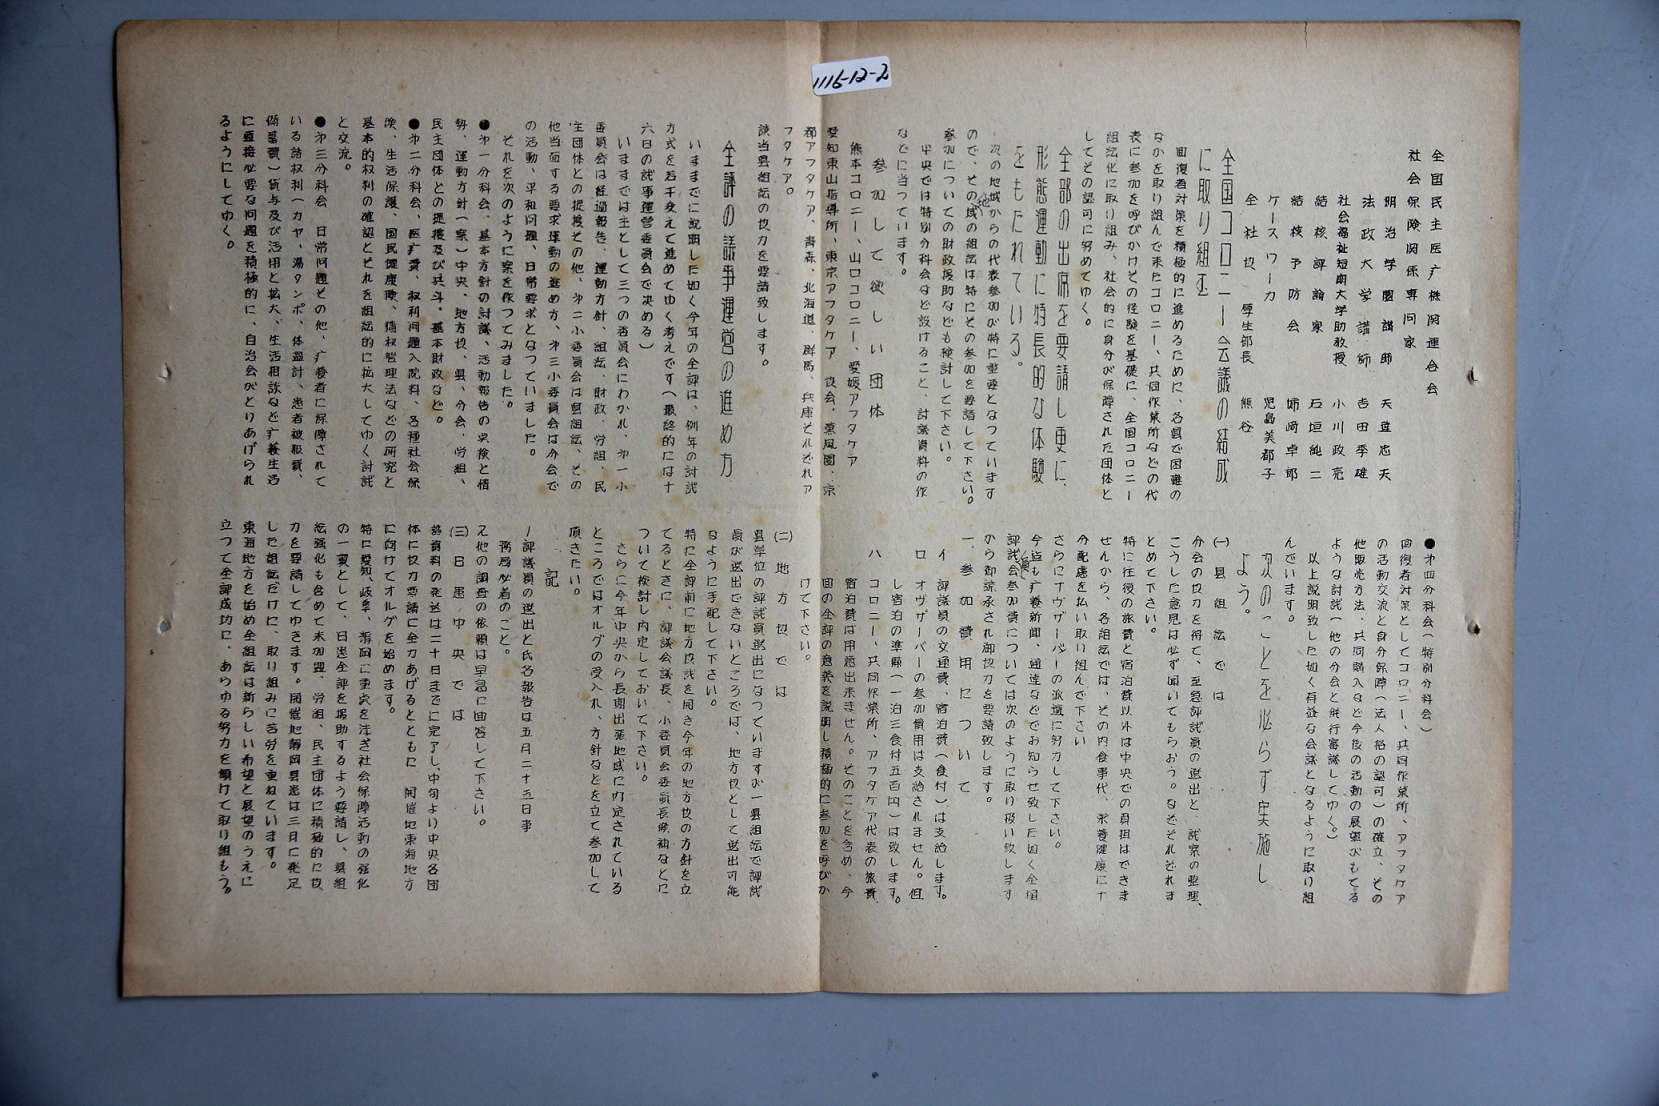 1116-12-2
全国民主医广機関連合会
社会保険関係専問家
明治学園講師 天達忠夫
法政大学講師 吉田季雄
社会福祉短期大学助教授 小川政亮
結核評論家 石垣純二
結核予防会 姉崎卓郎
ケースワーカ 児島美都子
全社協 厚生部長 熊谷
全国コロニー会議の結成
に取り組む
回復者対策を積極的に進めるために、各県で困難の
なかを取り組んで来たコロニー、共同作業所などの代
表に参加を呼びかけその経験を基礎に、全国コロニー
組織化に取り組み、社会的に身分が保障された団体と
してその認可に努めてゆく。
全部の出席を要請し更に、
形態運動に特長的な体験
をもたれている。
次の地域からの代表参加が特に重要となつています
ので、その地域の組織は特にその参加を要請して下さい。
参加についての財政援助なども検討して下さい。
中央では特別分科会など設けること、討議資料の作
などに当つています。
参加して欲しい団体
熊本コロニー、山口コロニー、愛媛アフタケア
愛知東山指導所、東京アフタケア協会、薫風園、京
都アフタケア、青森、北海道、群馬、兵庫それぞれア
フタケア。
該当県組織の協力を要請致します。
全評の議事運営の進め方
いままでに説明した如く今年の全評は、例年の討議
方式を若干変えて進めてゆく考えです（最終的には十
六日の議事運営委員会で決める）
いままでは主として三つの委員会にわかれ、第一小
委員会は経過報告、運動方針、組織、財政、労組、民
主団体との提携その他、第二小委員会は県組織、その
他当面する要求運動の進め方、第三小委員会は分会で
の活動、平和問題、日常要求となつていました。
それを次のように案を作つてみました。
●第一分科会、基本方針の討議、活動報告の実検と情
勢、運動方針（案）中央、地方協、県、分会、労組、
民主団体との提携及び共斗、基本財政など。
●第二分科会、医广費、权利問題入院料、各種社会保
険、生活保護、国民健康保険、債权管理法などの研究と
基本的权利の確認とそれを組織的に拡大してゆく討議
と交流。
●第三分科会 日常問題その他、广養者に保障されて
いる諸权利（カヤ、湯タンポ、体温計、患者被服費、
備蓄費）貸与及び活用と拡大、生活相談など广養生活
に直接必要な問題を積極的に、自治会がとりあげられ
るようにしてゆく。
●第四分科会（特別分科会）
回復者対策としてコロニー、共同作業所、アフタケア
の活動交流と身分保障（法人格の認可）の確立、その
他販売方法、共同購入など今后の活動の展望がもてる
ような討議（他の分会と併行審議してゆく。）
以上説明致した如く有益な会議となるように取り組
んでいます。
次のことを必らず実施し
よう。
㈠ 県組織では
分会の協力を得て、至急評議員の選出と、議案の整理、
こうした意見は必ず聞いてもらおう。などそれぞれま
とめて下さい。
特に往復の旅費と宿泊費以外は中央での負担はできま
せんから、各組織では、その内食事代、栄養健康に十
分配慮を払い取り組んで下さい
さらにオヴザーバーの派遣に努力して下さい。
今迄も广養新聞、通達などでお知らせ致した如く全国
評議会参加費については次のように取り扱い致します
から御諒承され御協力を要請致します。
一、参加費用について
イ 評議員の交通費、宿泊費（食付）は支給します。
ロ オヴザーバーの参加費用は支給されません。但
し宿泊の準備（一泊三食付五百円）は致します。
ハ コロニー、共同作業所、アフタケア代表の旅費、
宿泊費は用意出来ません。そのことを含め、今
回の全評の意義を説明し積極的に参加を呼びか
けて下さい。
㈡ 地方協では
県単位の評議員選出になつていますが一県組織で評議
員が選出できないところでは、地方協として選出可能
なように手配して下さい。
特に全評前に地方協議を開き今年の地方協の方針を立
てるときに、評議会議長、小委員会委員長候補などに
ついて検討し内定しておいて下さい。
さらに今年中央から長期出発地域に内定されている
ところではオルグの受入れ、方針などを立て参加して
頂きたい。
記
評議員の選出と氏名報告は五月二十五日事
務局必着のこと。
又他の調査の依頼は早急に回答して下さい。
㈢ 日患中央では
諸資料の発送は二十日までに完了し、中旬より中央各団
体に協力要請に全力あげるとともに 開催地東海地方
に向けてオルグを始めます。
特に愛知、岐阜、静岡に重点を注ぎ社会保障活動の強化
の一翼として、日患全評を援助するよう要請し、県組
織強化も含めて未加盟、労組、民主団体に積極的に協
力を要請してゆきます。開催地静岡県患は三日に発足
した組織だけに、取り組みに苦労を重ねています。
東海地方を始め全組織は新らしい希望と展望のうえに
立つて全評成功に、あらゆる努力を傾けて取り組もう。